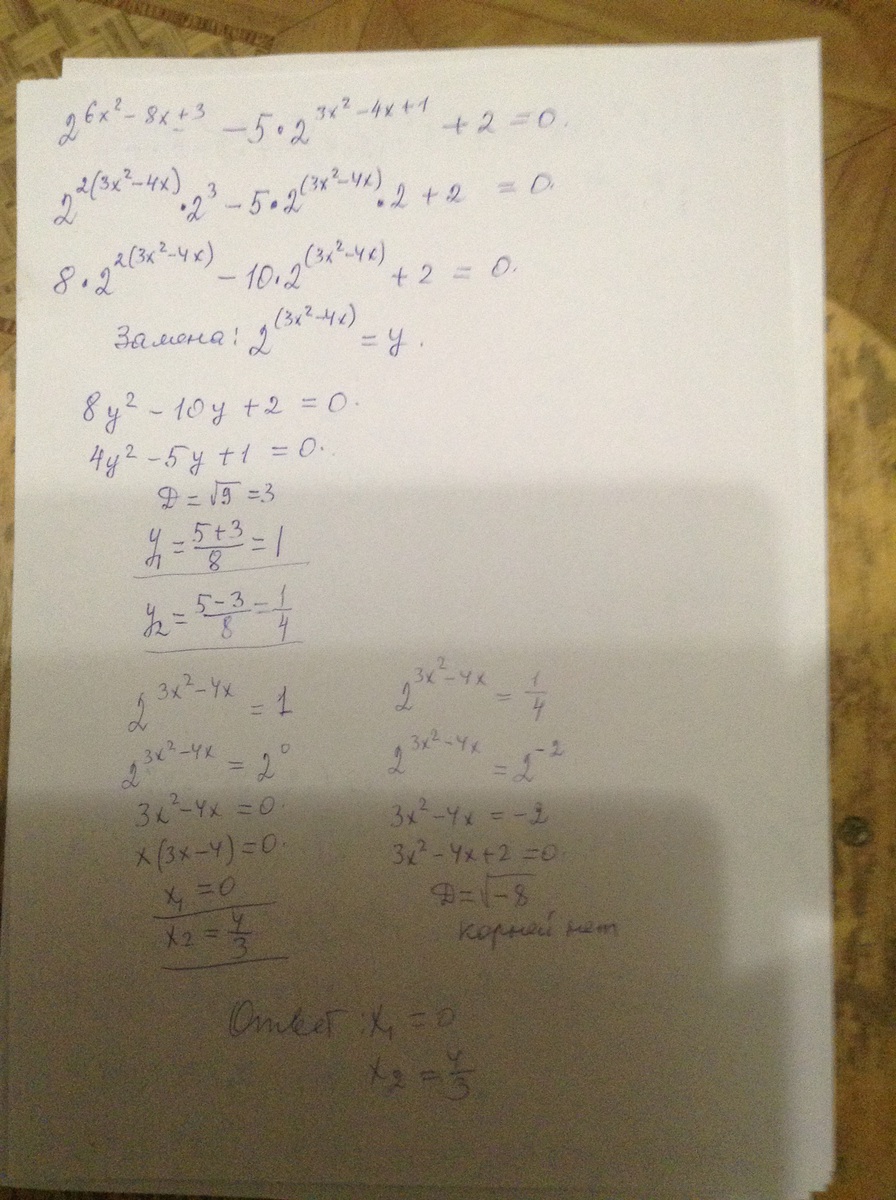 2^(6x² − 8x + 3) − 5 · 2^(3x² − 4x + 1) + 2 = 0.
2^(2(3x² − 4x)) · 2³ − 5 · 2^((3x² − 4x)) · 2 + 2 = 0.
8 · 2^(2(3x² − 4x)) − 10 · 2^((3x² − 4x)) + 2 = 0.
Замена: 2^((3x² − 4x)) = y.
8y² − 10y + 2 = 0.
4y² − 5y + 1 = 0.
D = √9 = 3
y₁ = (5+3)/8 = 1
y₂ = (5−3)/8 = 1/4
2^(3x² − 4x) = 1
2^(3x² − 4x) = 2⁰
3x² − 4x = 0.
x(3x − 4) = 0.
x₁ = 0
x₂ = 4/3
2^(3x² − 4x) = 1/4
2^(3x² − 4x) = 2⁻²
3x² − 4x = −2
3x² − 4x + 2 = 0.
D = √−8
корней нет
Ответ: x₁ = 0
x₂ = 4/3